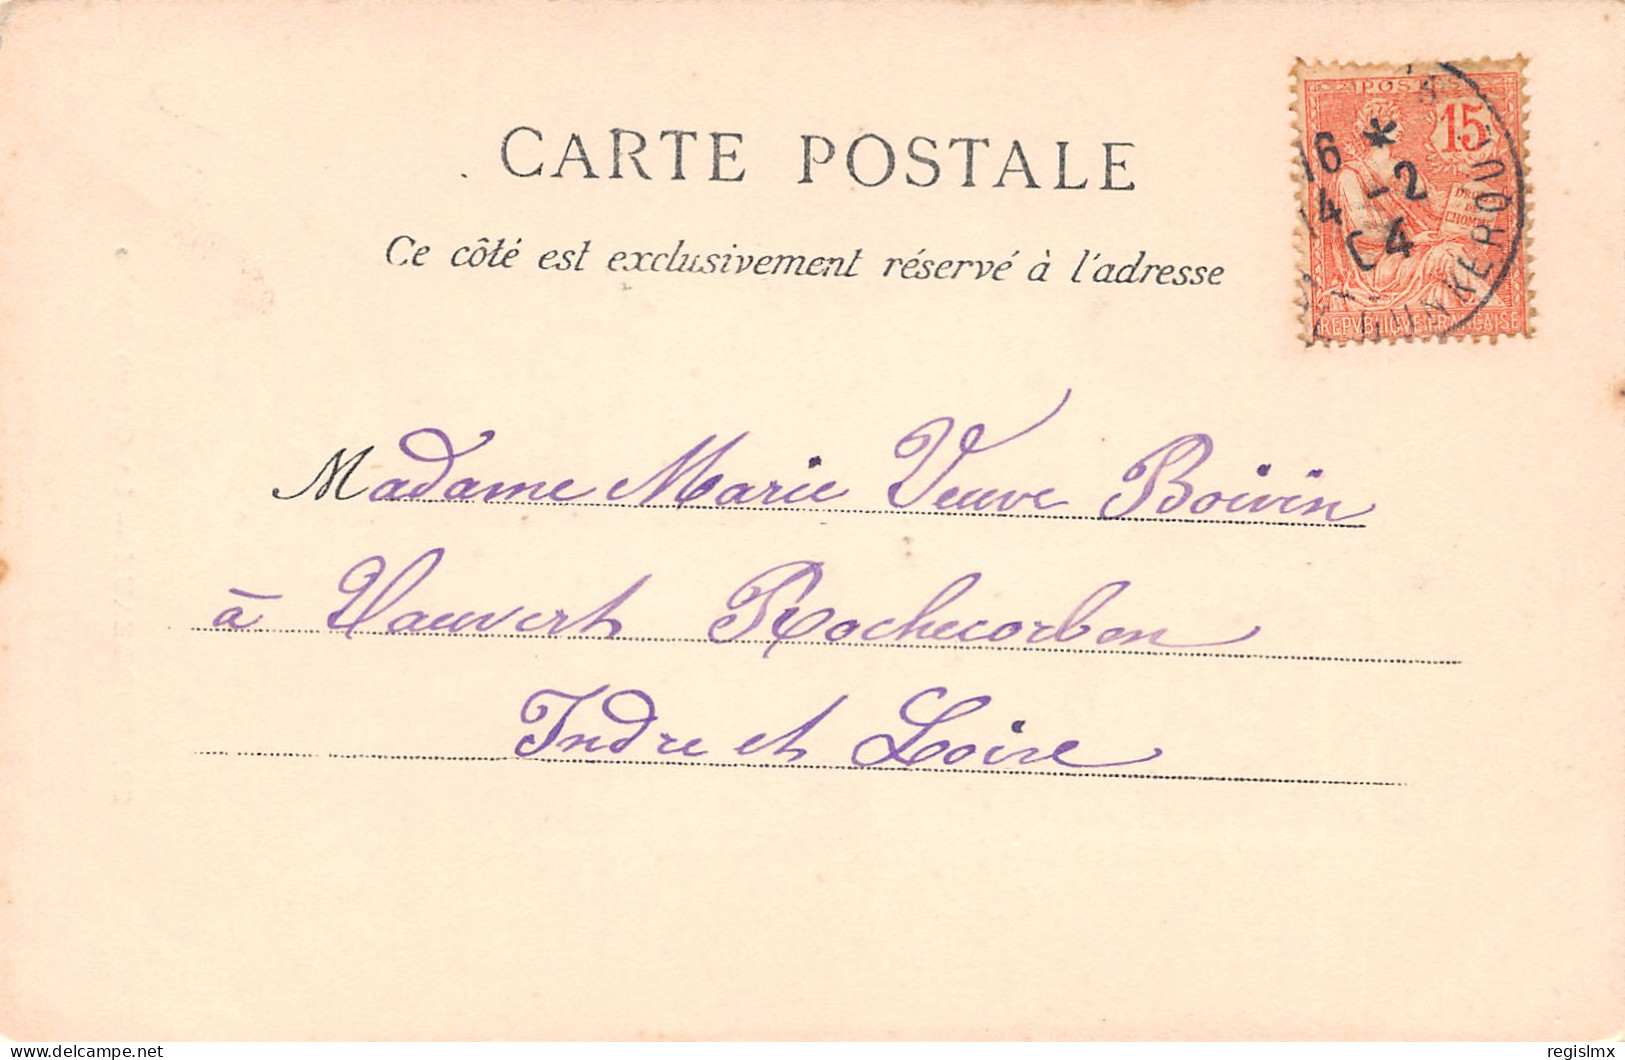 CARTE POSTALE
Ce côté est exclusivement réservé à l'adresse
POSTES
15
DROITS
DE
L'HOMME
REPVBLIQVE FRANCAISE
16 *
14 -2
04
DUNKERQUE
Madame Marie Veuve Boivin
à Vauvert Rochecorbon
Indre et Loire
delcampe.net
regislmx